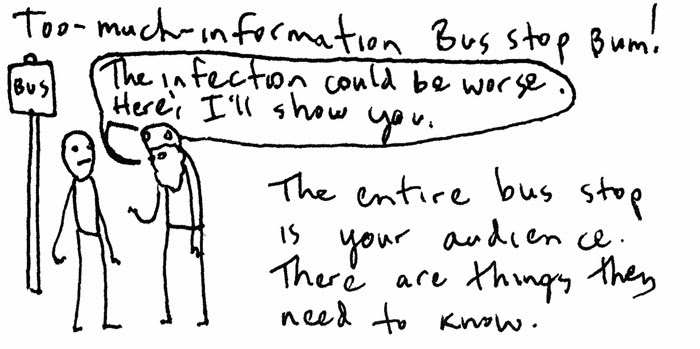 Too-much-information Bus stop Bum!
BUS
The infection could be worse.
Here, I'll show you.
The entire bus stop
is your audience.
There are things they
need to know.